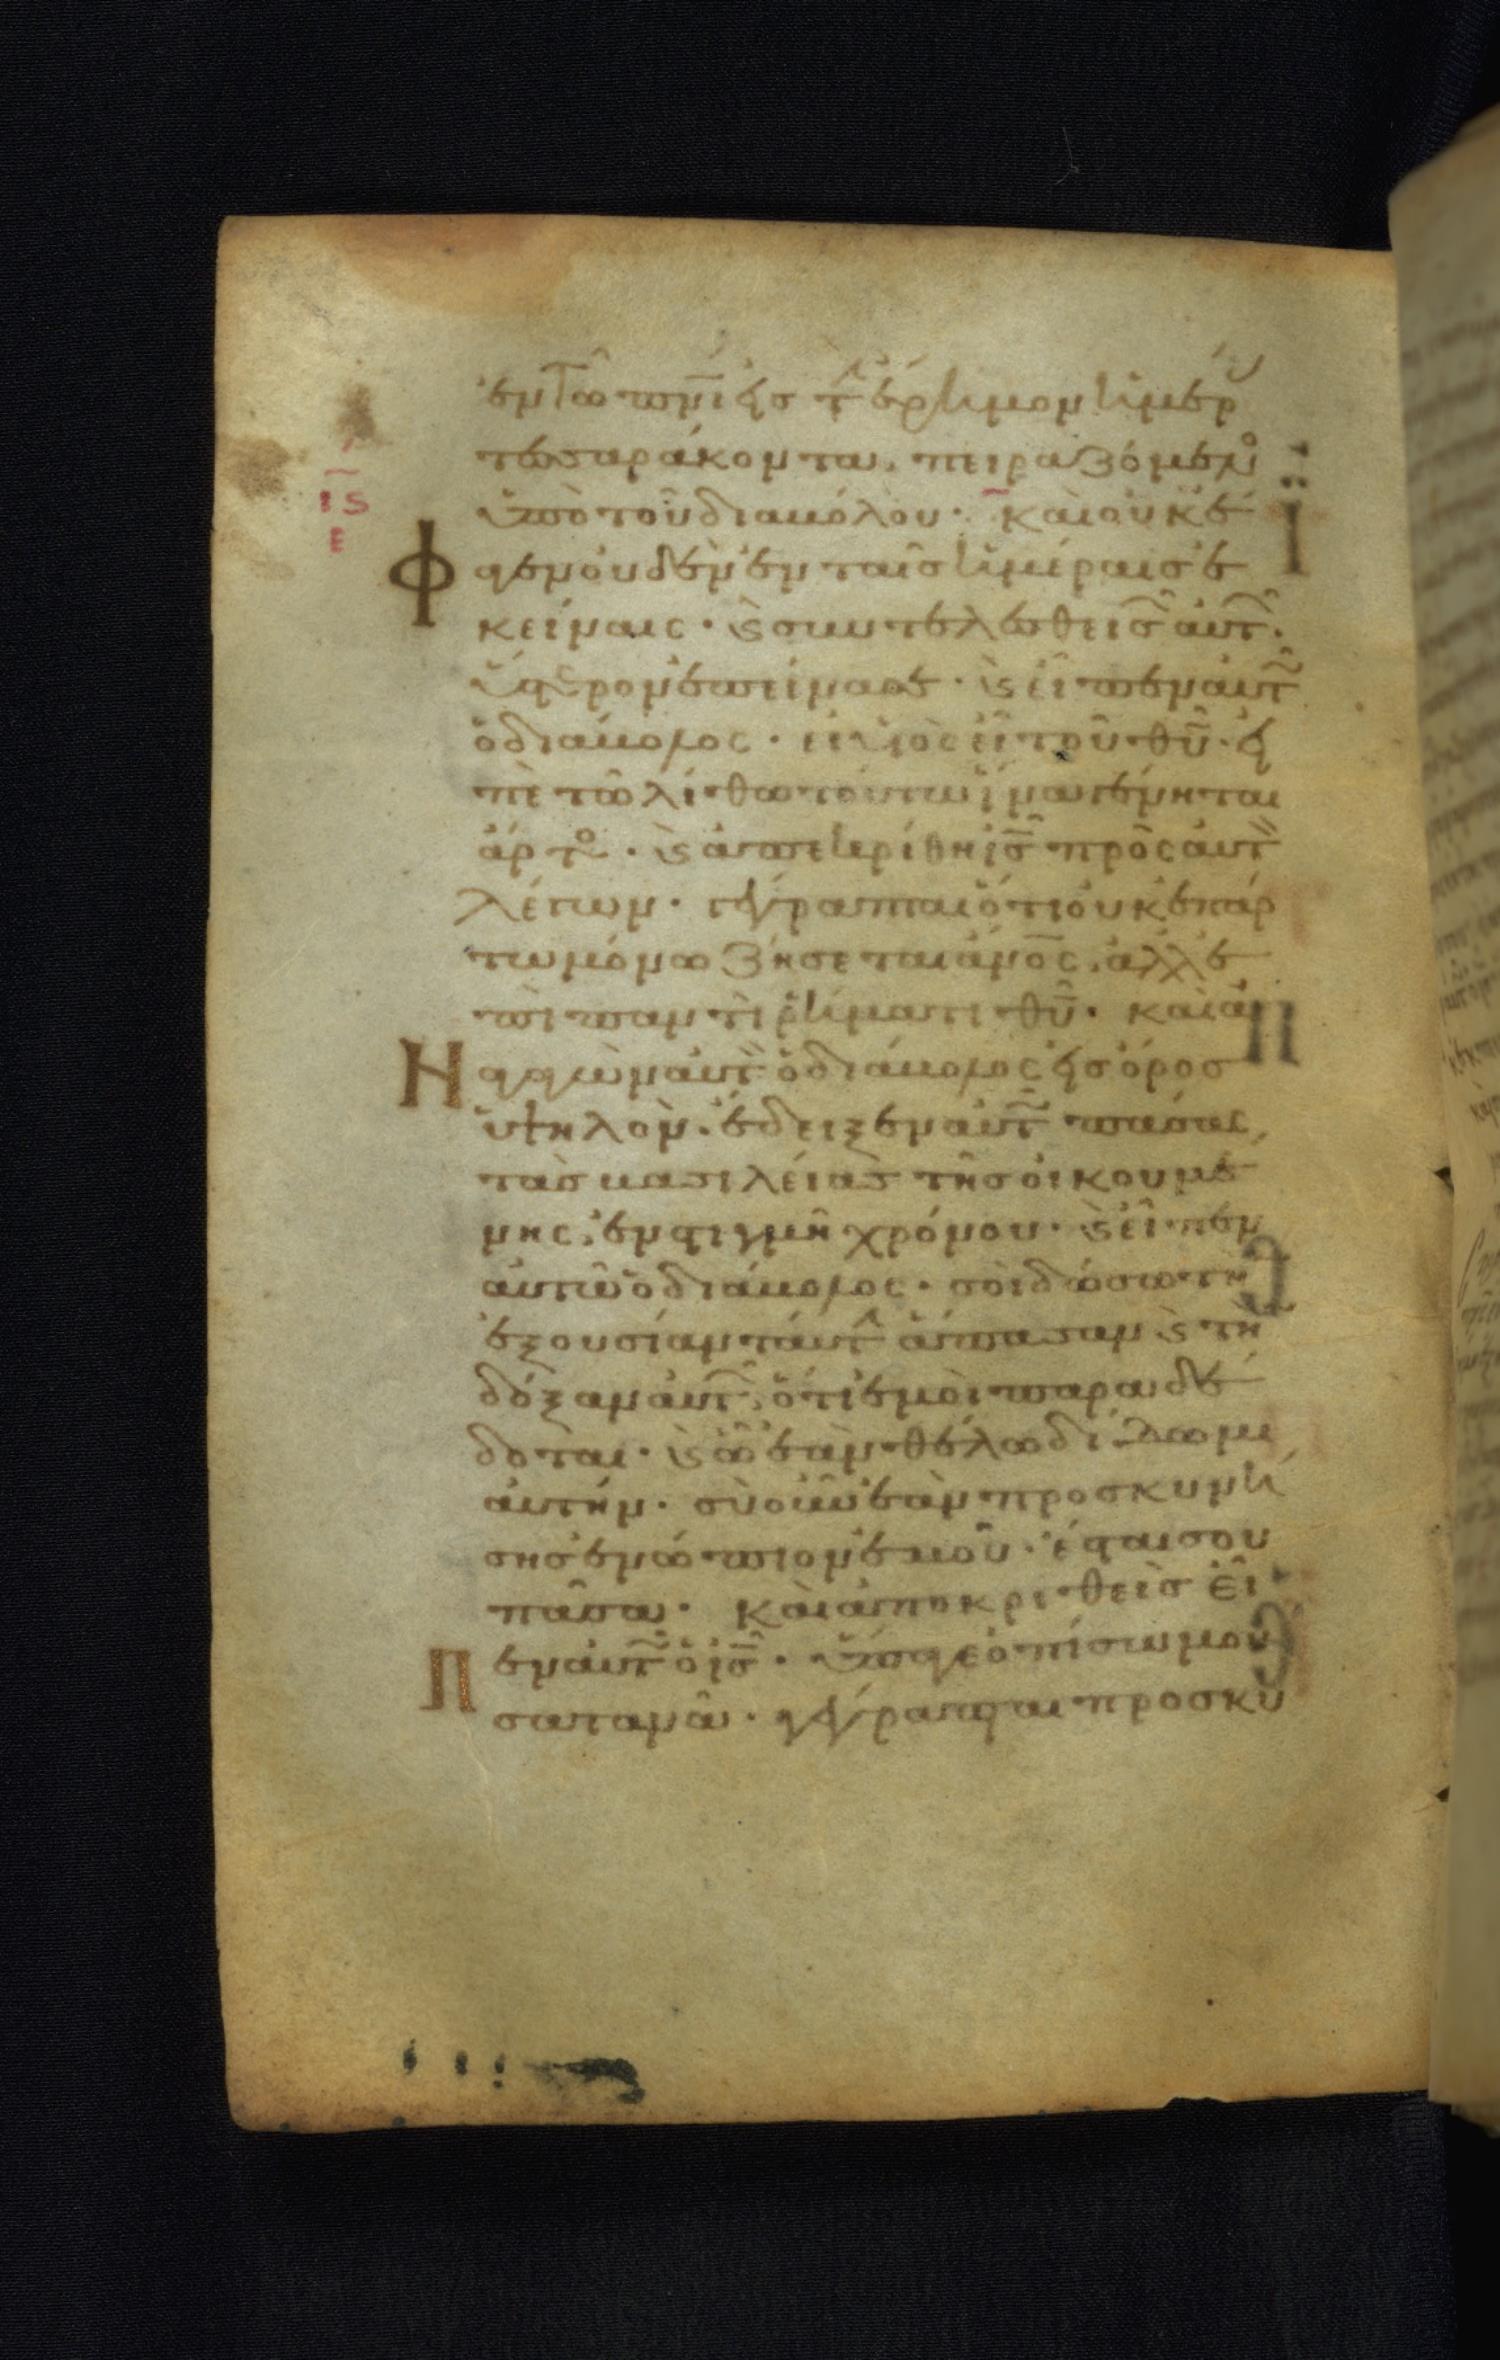 ἐν τῶ πνι εἰς τ ἔρημον ἡμέρ
τεσσαράκοντα πειραζόμεν
ὑπὸ τοῦ διαβόλου · και οὐκ ἔ
ις
ε
φαγεν οὐδὲν ἐν ταῖς ἡμέραις ἐ
κείναις · ϗ συντελεσθεισ αὐτ ·
ὕστερον ἐπείνασε · ϗ εἶπεν αὐτ
ὁ διάβολος · εἰ υἱὸς εἶ τοῦ θυ · εἰ
πὲ τῶ λίθω τούτω ἵνα γένηται
ἄρτο · ϗ ἀπεκρίθη ις πρὸς αὐτ
λέγων · γέγραπται ὅτι οὐκ ἐπ ἄρ
τω μόνω ζήσεται ανος · ἀλλ ἐ
πὶ παντὶ ῥήματι θυ · και ἀ
Ναγαγὼν αὐτ ὁ διάβολος εἰς ὄρος
ὑψηλὸν · ἔδειξεν αὐτ πάσας
τὰς βασιλείας τῆς οἰκουμέ
νης · ἐν στιγμῆ χρόνου · ϗ εἶπεν
αὐτῶ ὁ διάβολος · σοὶ δώσω τὴ
ἐξουσίαν ταύτ ἅπασαν ϗ τὴ
δόξαν αὐτ · ὅτι ἐμοὶ παραδέ
δοται · ϗ ὧ ἐὰν θέλω δίδωμι
αὐτήν · σὺ οὖν ἐὰν προσκυνή
σης ἐνώπιον ἐμοῦ · ἔσται σου
πᾶσα · και ἀποκριθεὶς εἶ
Πεν αὐτ ὁ ις · ὕπαγε ὀπίσω μου
σατανᾶ · γέγραπται προσκυ